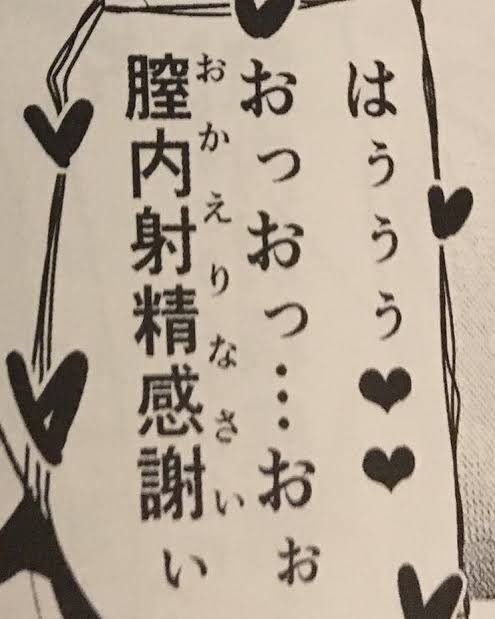 はぅぅぅ♥♥
おっおっ…おぉ
膣内射精感謝ぃ
おかえりなさい